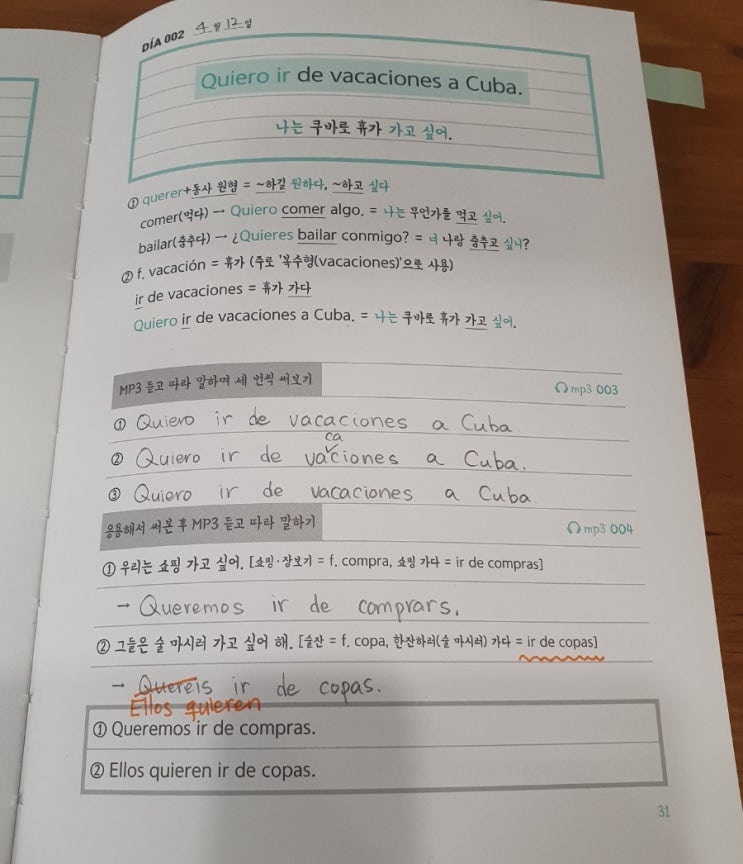 DÍA 002 4월 12일
Quiero ir de vacaciones a Cuba.
나는 쿠바로 휴가 가고 싶어.
① querer+동사 원형 = ~하길 원하다, ~하고 싶다
comer(먹다) → Quiero comer algo. = 나는 무언가를 먹고 싶어.
bailar(춤추다) → ¿Quieres bailar conmigo? = 너 나랑 춤추고 싶니?
② f. vacación = 휴가 (주로 '복수형(vacaciones)'으로 사용)
ir de vacaciones = 휴가 가다
Quiero ir de vacaciones a Cuba. = 나는 쿠바로 휴가 가고 싶어.
MP3 듣고 따라 말하며 세 번씩 써보기 mp3 003
① Quiero ir de vacaciones a Cuba
ca
② Quiero ir de vaciones a Cuba.
③ Quiero ir de vacaciones a Cuba.
응용해서 써본 후 MP3 듣고 따라 말하기 mp3 004
① 우리는 쇼핑 가고 싶어. [쇼핑·장보기 = f. compra, 쇼핑 가다 = ir de compras]
→ Queremos ir de comprars.
② 그들은 술 마시러 가고 싶어 해. [술잔 = f. copa, 한잔하러(술 마시러) 가다 = ir de copas]
→ Quereis ir de copas.
Ellos quieren
① Queremos ir de compras.
② Ellos quieren ir de copas.
31